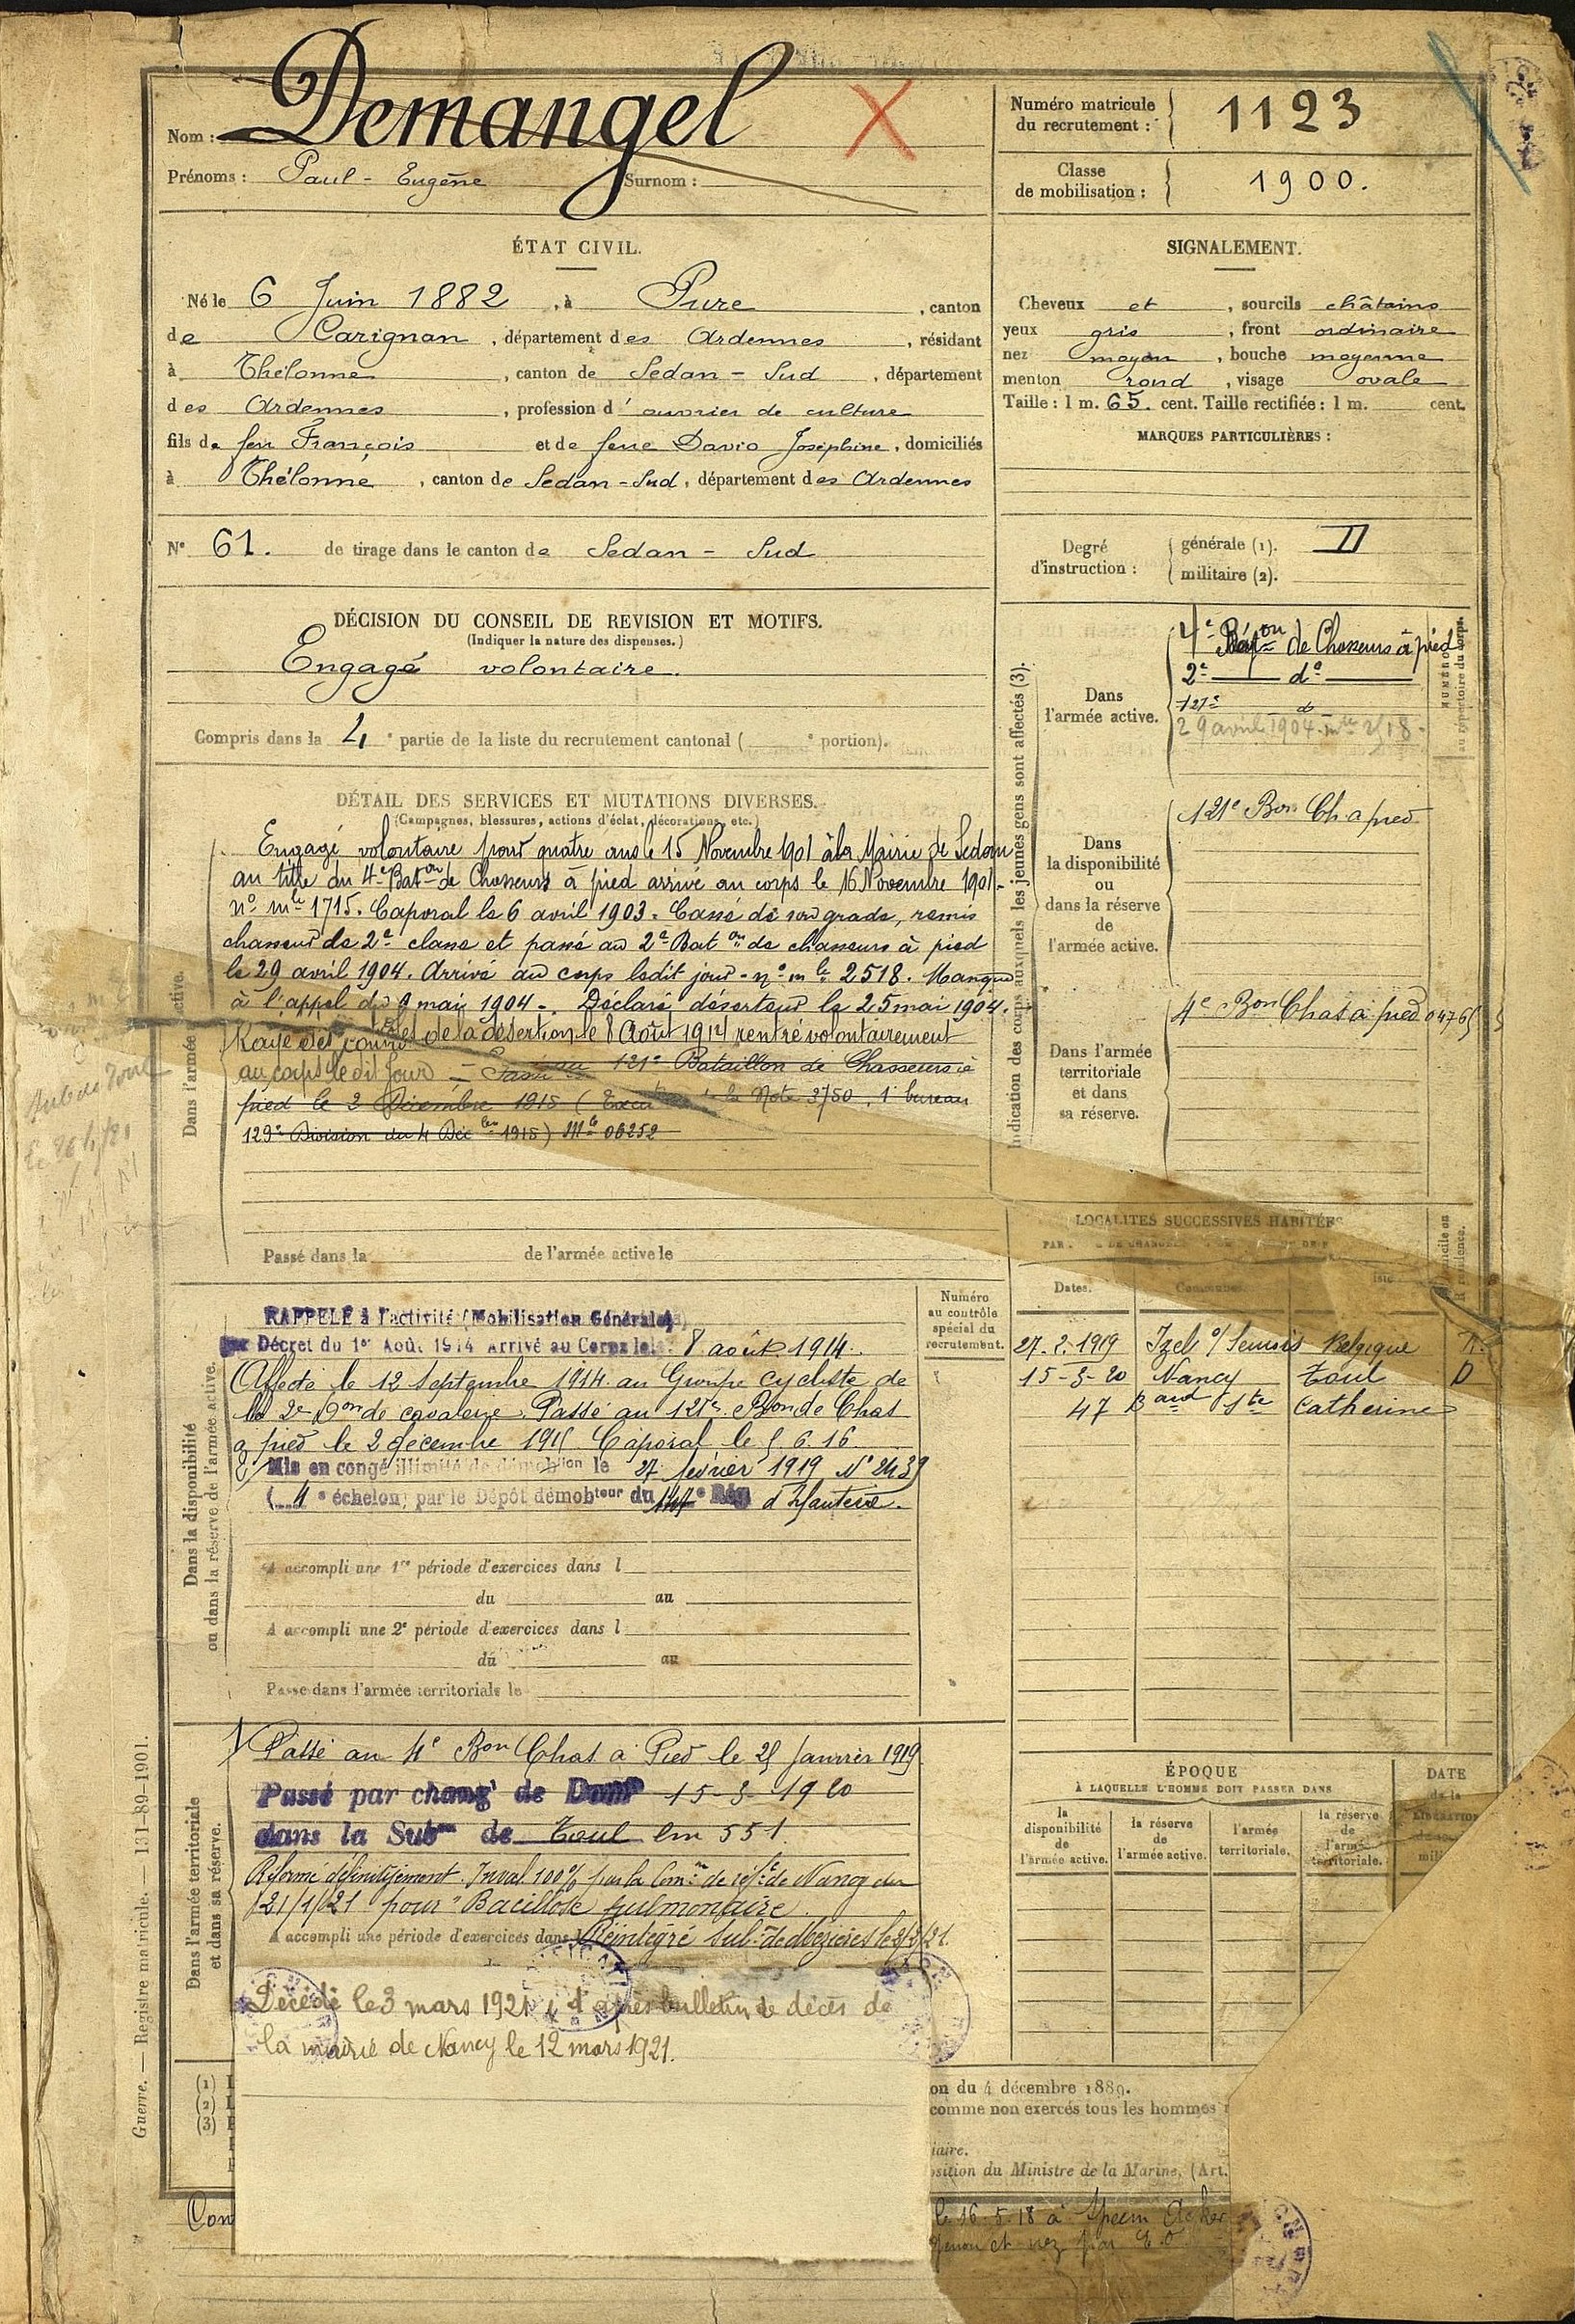 Nom : Demangel X
Prénoms : Paul - Eugène Surnom :
Numéro matricule du recrutement : 1123
Classe de mobilisation : 1900.
ÉTAT CIVIL.
Né le 6 Juin 1882, à Pure, canton
de Carignan, département des Ardennes, résidant
à Thélonne, canton de Sedan - Sud, département
des Ardennes, profession d'ouvrier de culture
fils de feu François et de feue Davio Joséphine, domiciliés
à Thélonne, canton de Sedan - Sud, département des Ardennes
SIGNALEMENT.
Cheveux et, sourcils châtains
yeux gris, front ordinaire
nez moyen, bouche moyenne
menton rond, visage ovale
Taille : 1 m. 65. cent. Taille rectifiée : 1 m. cent.
MARQUES PARTICULIÈRES :
N° 61. de tirage dans le canton de Sedan - Sud
Degré d'instruction :
générale (1). II
militaire (2).
DÉCISION DU CONSEIL DE REVISION ET MOTIFS.
(Indiquer la nature des dispenses.)
Engagé volontaire.
Compris dans la 4e partie de la liste du recrutement cantonal ( e portion).
DÉTAIL DES SERVICES ET MUTATIONS DIVERSES.
(Campagnes, blessures, actions d'éclat, décorations, etc.)
Dans l'armée active.
Engagé volontaire pour quatre ans le 15 Novembre 1901 à la Mairie de Sedan
au titre du 4e Baton de Chasseurs à pied arrivé au corps le 16 Novembre 1901 -
n° mle 1715. Caporal le 6 avril 1903. Cassé de son grade, remis
chasseur de 2e classe et passé au 2e Baton de chasseurs à pied
le 29 avril 1904. Arrivé au corps ledit jour - n° mle 2518. Manque
à l'appel du 9 mai 1904 -. Déclaré déserteur le 25 mai 1904.
Rayé des contrôles de la désertion le 8 Août 1914 rentré volontairement
au corps le dit jour - Passé au 121e Bataillon de Chasseurs à
pied le 2 Décembre 1915 ( la Note 3750, 1 bureau
129e Division du 4 Décbre 1915) Mle 06252
Passé dans la de l'armée active le
Indication des corps auxquels les jeunes gens sont affectés (3).
NUMÉRO au répertoire du corps.
Dans l'armée active.
4e Baton de Chasseurs à pied
2e do
29 avril 1904. mle 2518.
Dans la disponibilité ou dans la réserve de l'armée active.
121e Bon Ch a pied
Dans l'armée territoriale et dans sa réserve.
4e Bon Chas a pied 04765
LOCALITÉS SUCCESSIVES HABITÉES
Dates. Communes.
27.2.1919 Izel s/ Semois Belgique R.
15-3-20 Nancy Toul D
47 Bard Ste Catherine
Dans la disponibilité ou dans la réserve de l'armée active.
Numéro au contrôle spécial du recrutement.
RAPPELÉ à l'activité (Mobilisation Générale)
Décret du 1er Août 1914 Arrivé au Corps le 8 août 1914.
Affecté le 12 Septembre 1914 au Groupe cycliste de
la 2e Don de cavalerie. Passé au 121e Bon de Chas
a pied le 2 décembre 1915 Caporal le 5.6.16
Mis en congé illimité de démobilion le 27 février 1919 N° 2439
(4e échelon) par le Dépôt démobteur du 147e Rég d'Infanterie.
A accompli une 1re période d'exercices dans l
du au
A accompli une 2e période d'exercices dans l
du au
Passé dans l'armée territoriale le
Dans l'armée territoriale et dans sa réserve.
Passé au 4e Bon Chas à Pied le 25 Janvier 1919
Passé par changt de Domle 15-3-1920
dans la Subon de Toul lm 551
Réformé définitivement. Inval 100% par la Comon de réfe de Nancy du
21/1/1921 pour "Bacillose pulmonaire
A accompli une période d'exercices dans l Réintégré Subon de Mézières le 3/2/21.
Décédé le 3 mars 1921, d'après bulletin de décès de
la mairie de Nancy le 12 mars 1921.
ÉPOQUE
À LAQUELLE L'HOMME DOIT PASSER DANS
la disponibilité de l'armée active.
la réserve de l'armée active.
l'armée territoriale.
la réserve de l'armée territoriale.
DATE de la LIBÉRATION
(1)
(2)
(3)
on du 4 décembre 1889.
comme non exercés tous les hommes
iaire.
sition du Ministre de la Marine, (Art.
Con
le 16.5.18 à
genou et nez par E.O
Guerre. — Registre matricule. — 131-89-1901.